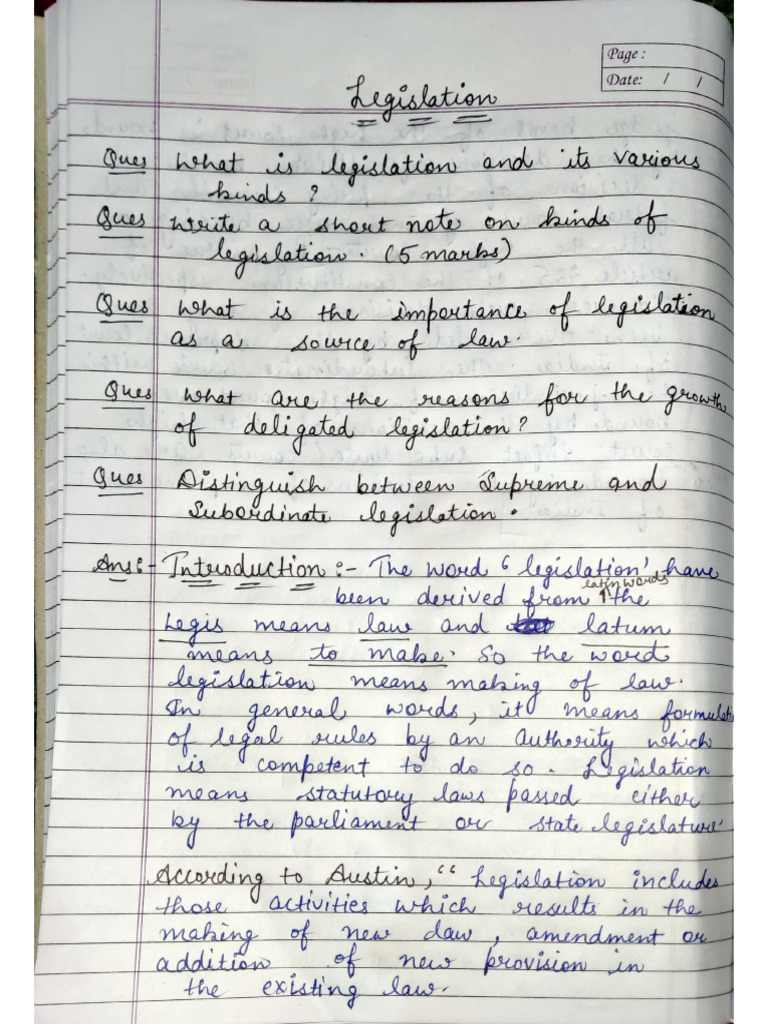 Page :
Date: / /
Legislation
Ques what is legislation and its various
kinds ?
Ques write a short note on kinds of
legislation. (5 marks)
Ques what is the importance of legislation
as a source of law.
Ques what are the reasons for the growth
of deligated legislation?
Ques Distinguish between Supreme and
Subordinate legislation.
Ans:- Introduction :- The word ‘legislation’ have
latin words
been derived from ↑ the
Legis means law and latum
means to make. So the word
legislation means making of law.
In general words, it means formulati
of legal rules by an authority which
is competent to do so. Legislation
means statutory laws passed either
by the parliament or state legislature.
According to Austin, “ Legislation includes
those activities which results in the
making of new law, amendment or
addition of new provision in
the existing law.